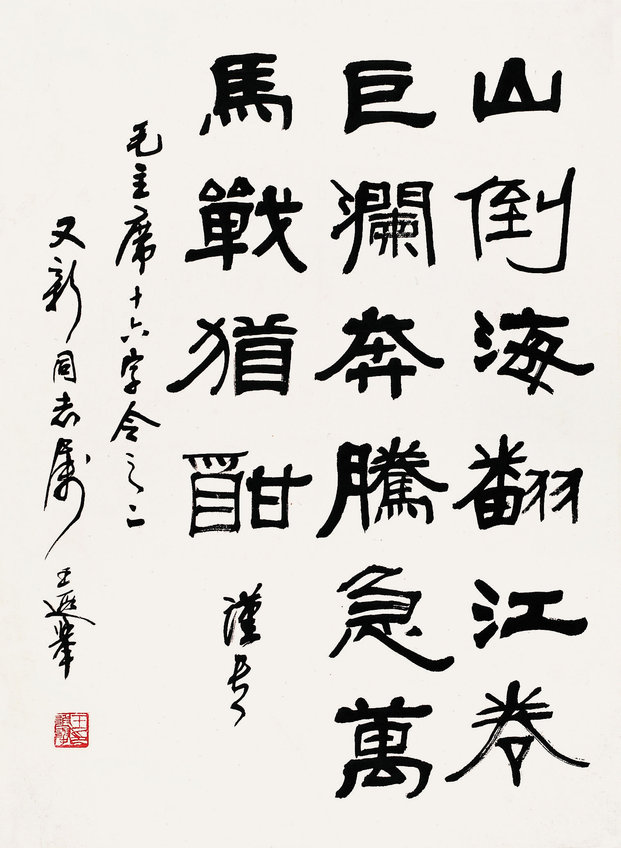 山倒海翻江卷
巨瀾奔騰急萬
馬戰猶酣
谨书
毛主席十六字令之二
又新同志属
王遐舉